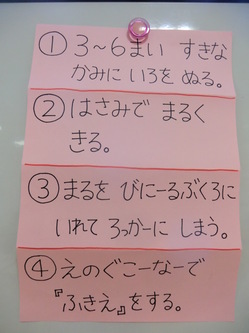 ① 3～6まい すきな
かみに いろを ぬる。
② はさみで まるく
きる。
③ まるを びにーるぶくろに
いれて ろっかーに しまう。
④ えのぐこーなーで
『ふきえ』をする。